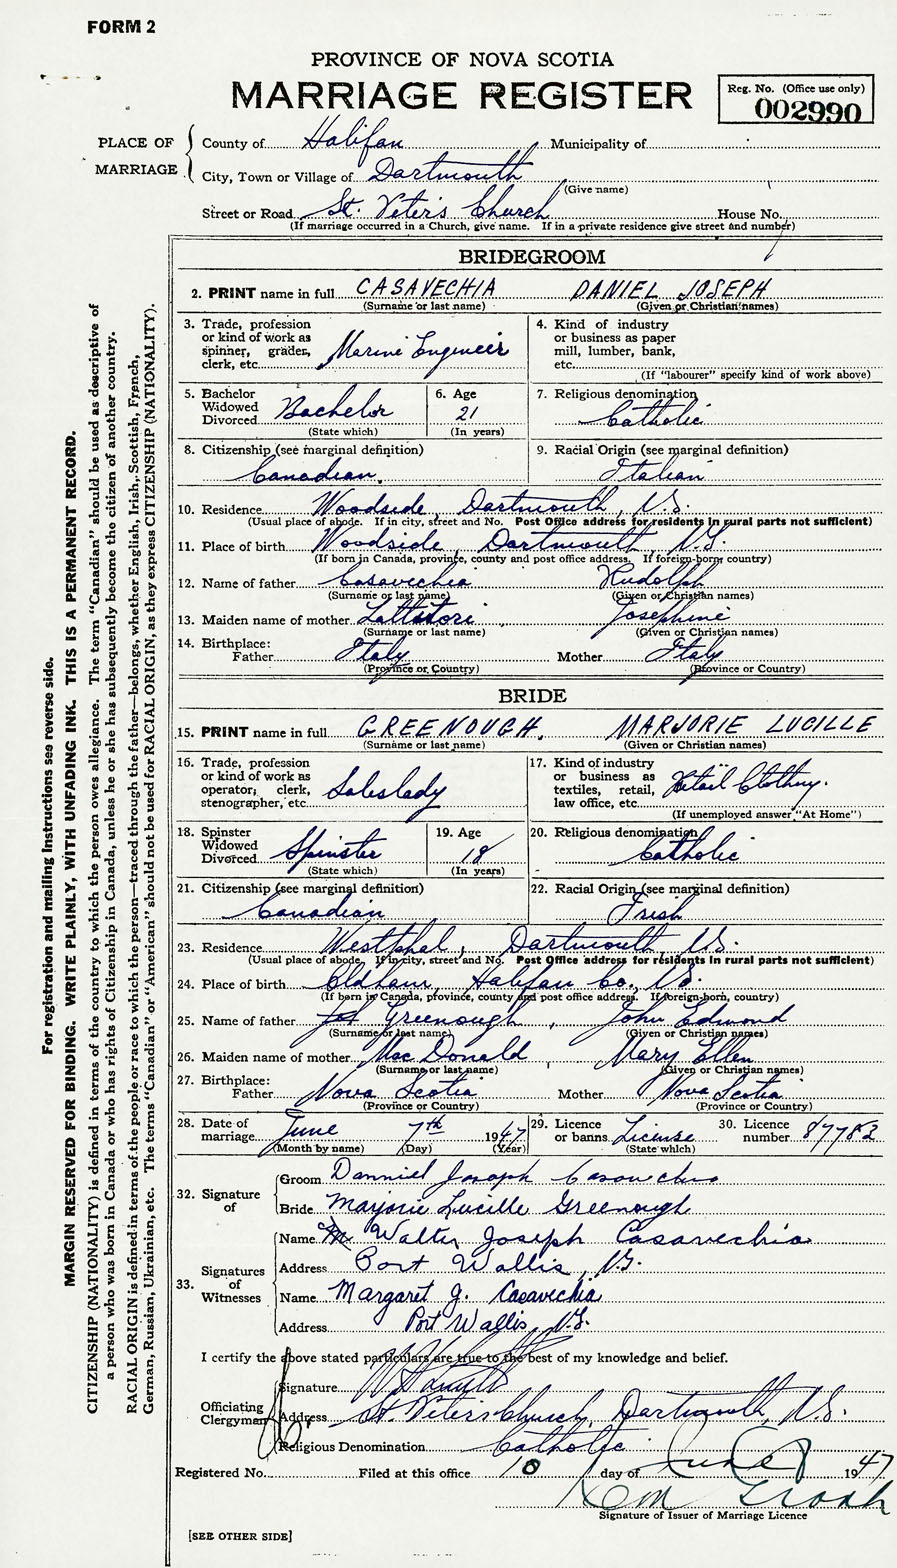 FORM 2
PROVINCE OF NOVA SCOTIA
MARRIAGE REGISTER
Reg. No. (Office use only)
002990
PLACE OF MARRIAGE
County of Halifax Municipality of
City, Town or Village of Dartmouth
(Give name)
Street or Road St. Peter's Church House No.
(If marriage occurred in a Church, give name. If in a private residence give street and number)
BRIDEGROOM
2. PRINT name in full CASAVECHIA DANIEL JOSEPH
(Surname or last name) (Given or Christian names)
3. Trade, profession or kind of work as spinner, grader, clerk, etc. Marine Engineer
4. Kind of industry or business as paper mill, lumber, bank, etc.
(If "labourer" specify kind of work above)
5. Bachelor Widowed Divorced Bachelor
(State which)
6. Age 21
(In years)
7. Religious denomination Catholic
8. Citizenship (see marginal definition) Canadian.
9. Racial Origin (see marginal definition) Italian
10. Residence Woodside, Dartmouth, N.S.
(Usual place of abode. If in city, street and No. Post Office address for residents in rural parts not sufficient)
11. Place of birth Woodside Dartmouth, N.S.
(If born in Canada, province, county and post office address. If foreign-born, country)
12. Name of father Casavechia Rudolph
(Surname or last name) (Given or Christian names)
13. Maiden name of mother Josephine
(Surname or last name) (Given or Christian names)
14. Birthplace:
Father Italy Mother Italy
(Province or Country) (Province or Country)
BRIDE
15. PRINT name in full GREENOUGH, MARJORIE LUCILLE
(Surname or last name) (Given or Christian names)
16. Trade, profession or kind of work as operator, clerk, stenographer, etc. Saleslady
17. Kind of industry or business as textiles, retail, law office, etc. Retail Clothing.
(If unemployed answer "At Home")
18. Spinster Widowed Divorced Spinster
(State which)
19. Age 18
(In years)
20. Religious denomination Catholic
21. Citizenship (see marginal definition) Canadian
22. Racial Origin (see marginal definition) Irish
23. Residence Westphal, Dartmouth, N.S.
(Usual place of abode. If in city, street and No. Post Office address for residents in rural parts not sufficient)
24. Place of birth Oldham, Halifax Co., N.S.
(If born in Canada, province, county and post office address. If foreign-born, country)
25. Name of father Greenough, John Edmond
(Surname or last name) (Given or Christian names)
26. Maiden name of mother MacDonald, Mary Ellen
(Surname or last name) (Given or Christian names)
27. Birthplace:
Father Nova Scotia Mother Nova Scotia
(Province or Country) (Province or Country)
28. Date of marriage June 7th 1947
(Month by name) (Day) (Year)
29. Licence or banns License
(State which)
30. Licence number 87782
32. Signature of
Groom Danniel Joseph Casavechia
Bride Marjorie Lucille Greenough
33. Signatures of Witnesses
Name Walter Joseph Casavechia
Address Port Wallis, N.S.
Name Margaret J. Casavechia
Address Port Wallis, N.S.
I certify the above stated particulars are true to the best of my knowledge and belief.
Officiating Clergyman
Signature
Address St. Peter's Church, Dartmouth, N.S.
Religious Denomination Catholic
Registered No. Filed at this office 10 day of June 1947
Signature of Issuer of Marriage Licence
[SEE OTHER SIDE]
For registration and mailing instructions see reverse side.
MARGIN RESERVED FOR BINDING. WRITE PLAINLY, WITH UNFADING INK. THIS IS A PERMANENT RECORD.
CITIZENSHIP (NATIONALITY) is defined in terms of the country to which the person owes allegiance. The term "Canadian" should be used as descriptive of
a person who was born in Canada or who has rights of Citizenship in Canada, unless he or she has subsequently become the citizen of another country.
RACIAL ORIGIN is defined in terms of the people or race to which the person—traced through the father—belongs, whether English, Irish, Scottish, French,
German, Russian, Ukrainian, etc. The terms "Canadian" or "American" should not be used for RACIAL ORIGIN, as they express CITIZENSHIP (NATIONALITY).